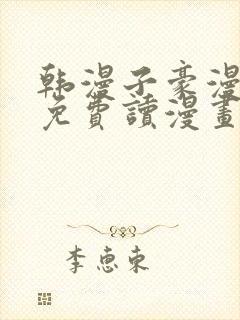 韩漫子豪漫
免費讀漫畫
李惠東